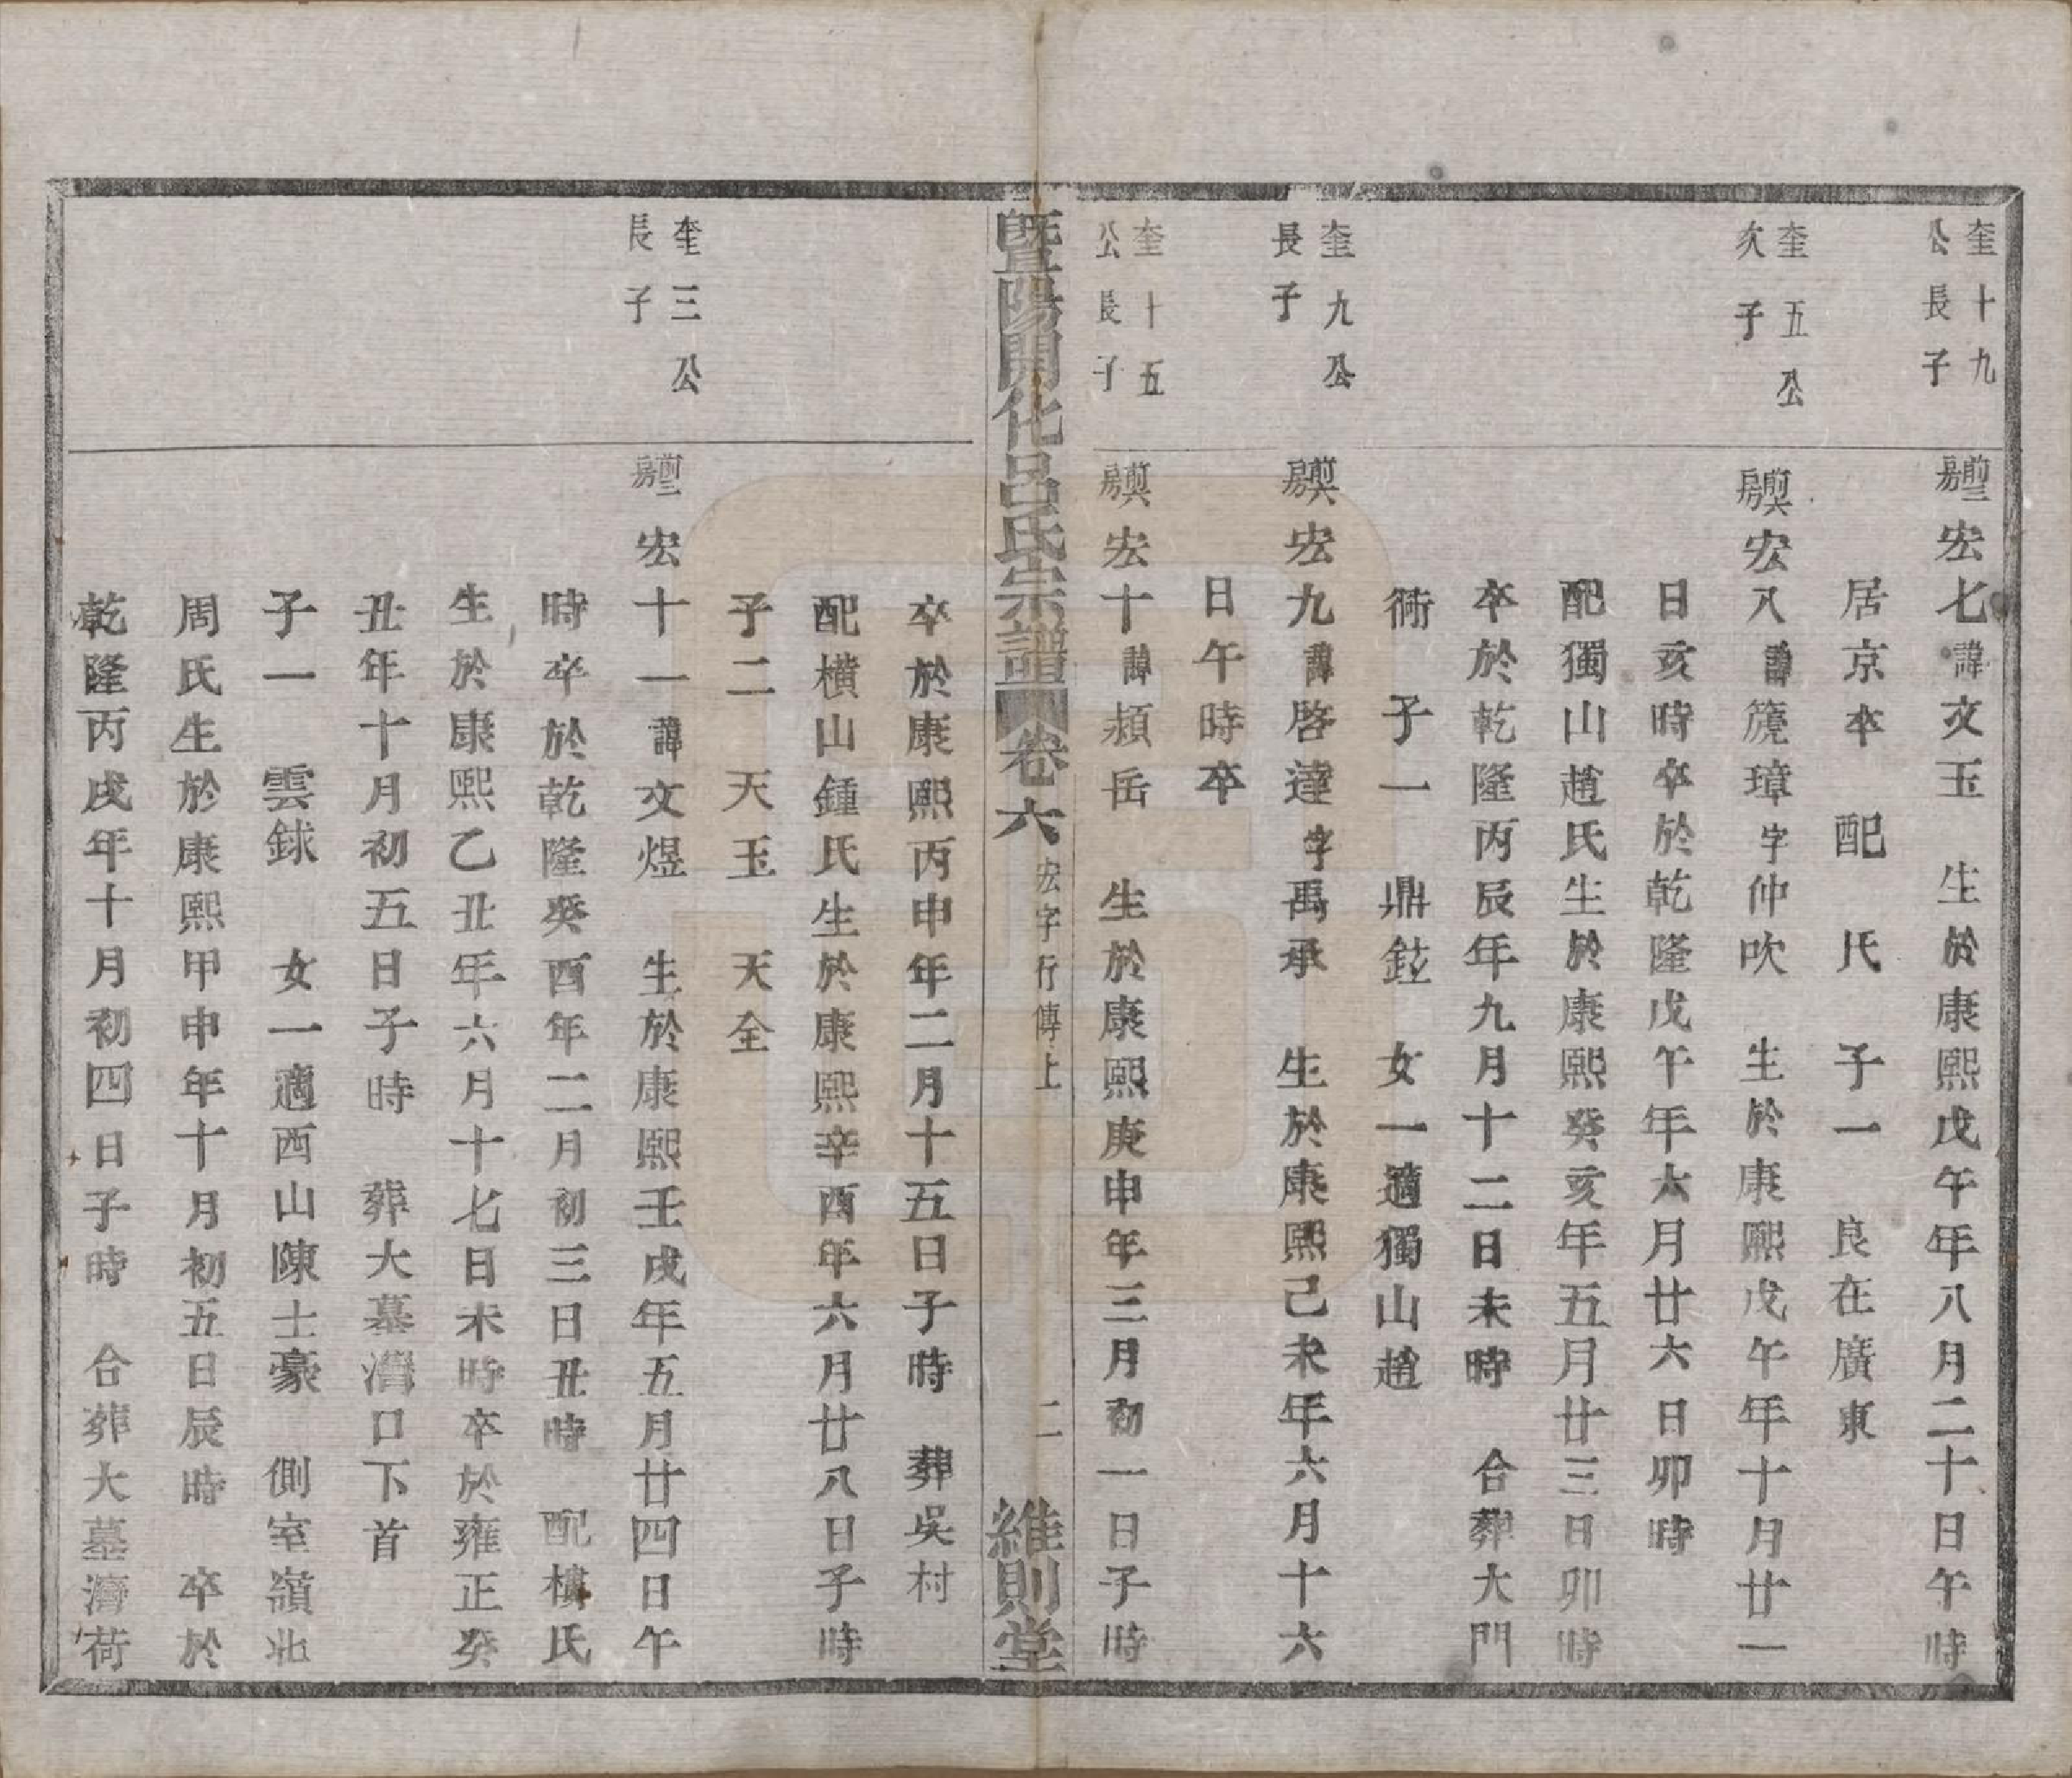 奎十九
公長子
宏七諱文玉　生於康熙戊午年八月二十日午時
居京卒　配　氏　子一　良在廣東
奎五公
次子
宏八諱箎璋字仲吹　生於康熙戊午年十月廿一
日亥時卒於乾隆戊午年六月廿六日卯時
配獨山趙氏生於康熙癸亥年五月廿三日卯時
卒於乾隆丙辰年九月十二日未時　合葬大門
衕　子一　鼎鉉　女一適獨山趙
奎九公
長子
宏九諱啓達字禹承　生於康熙己未年六月十六
日午時卒
奎十五
公長子
宏十諱潁岳　生於康熙庚申年三月初一日子時
暨陽開化呂氏宗譜　卷六　宏字行傳上　二　維則堂
卒於康熙丙申年二月十五日子時　葬吳村
配橫山鍾氏生於康熙辛酉年六月廿八日子時
子二　天玉　天全
奎三公
長子
宏十一諱文煜　生於康熙壬戌年五月廿四日午
時卒於乾隆癸酉年二月初三日丑時　配樓氏
生於康熙乙丑年六月十七日未時卒於雍正癸
丑年十月初五日子時　葬大墓灣口下首
子一　雲銶　女一適西山陳士豪　側室嶺北
周氏生於康熙甲申年十月初五日辰時　卒於
乾隆丙戌年十月初四日子時　合葬大墓灣荷